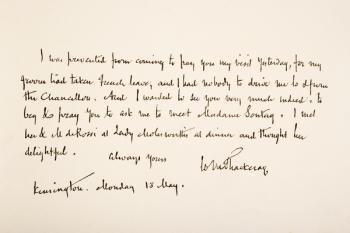 I was prevented from coming to pay you my visit yesterday, for my
groom had taken french leave; and I had nobody to drive me to & from
the Chancellor. And I wanted to see you very much indeed: to
beg & pray you to ask me to meet Madame Sontag. I met
her & M de Rossi at Lady Molesworths at dinner and thought her
delightful.
Always Yours
WMThackeray
Kensington. Monday 13 May.